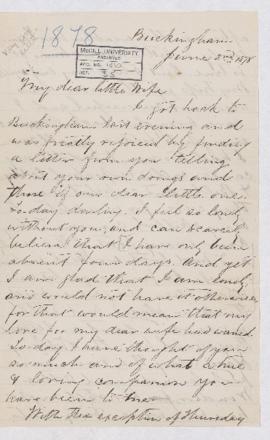 1878
McGILL UNIVERSITY
ARCHIVES
ACC. NO.
REF.
Buckingham
June 2nd 1878
My dear little Wife
I got back to
Buckingham last evening and
was greatly rejoiced by finding
a letter from you telling
about your own doings and
those of our dear little ones.
To-day darling I feel so lonely
without you, and can scarcely
believe that I have only been
absent four days. And yet
I am glad that I am lonely
and would not have it otherwise
for that would mean that my
love for my dear wife had waned.
To-day I have thought of you
so much and of what a true
& loving companion you
have been to me.
With the exception of Thursday